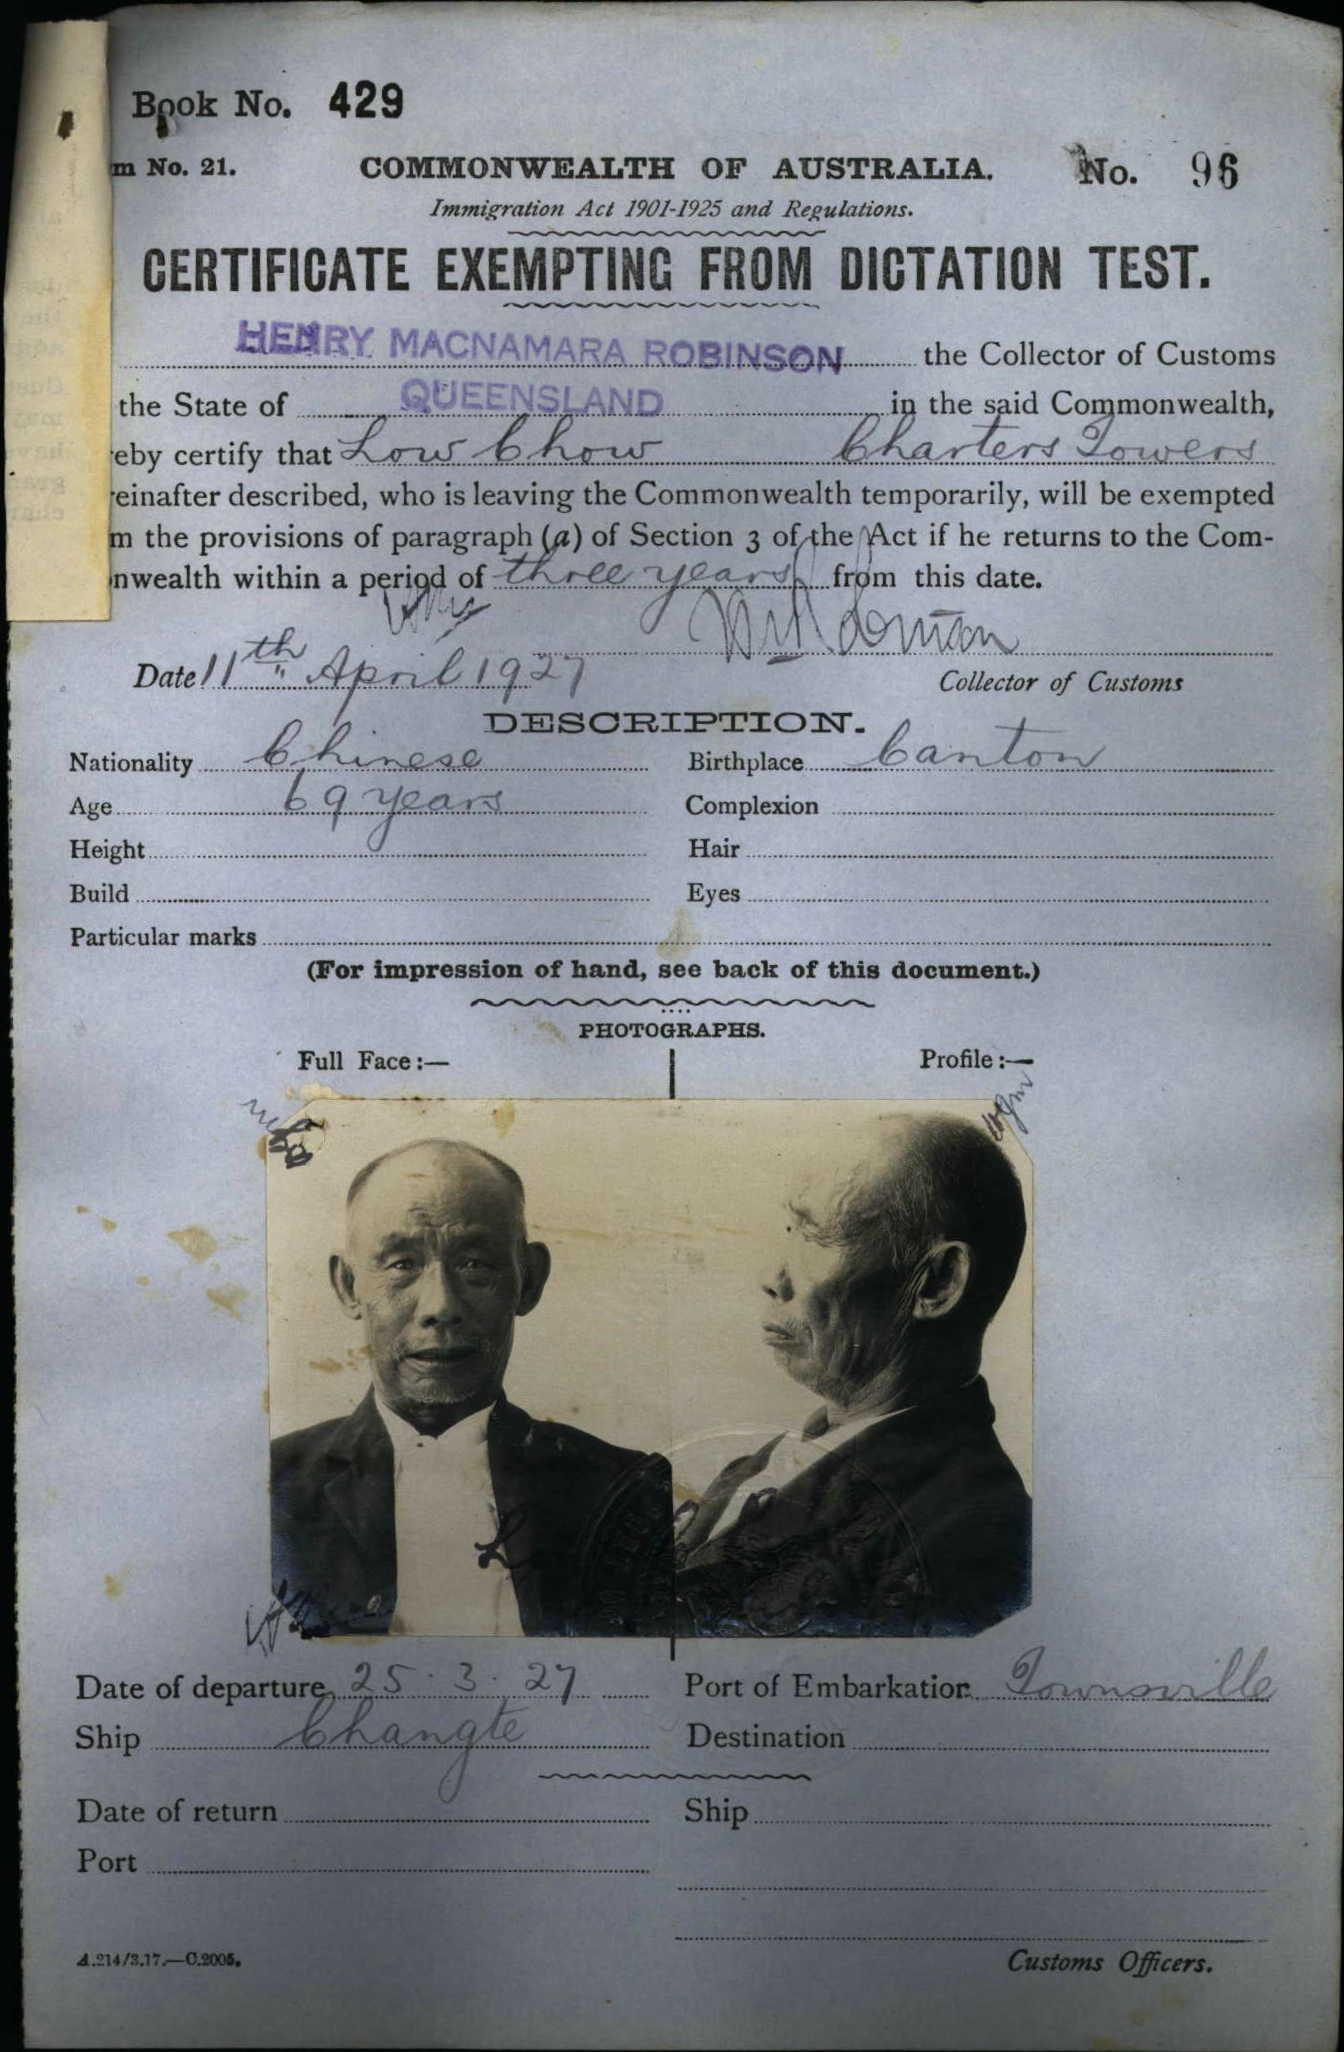 Book No. 429
m No. 21. COMMONWEALTH OF AUSTRALIA. No. 96
Immigration Act 1901-1925 and Regulations.
CERTIFICATE EXEMPTING FROM DICTATION TEST.
HENRY MACNAMARA ROBINSON the Collector of Customs
the State of QUEENSLAND in the said Commonwealth,
eby certify that Low Chow Charters Towers
einafter described, who is leaving the Commonwealth temporarily, will be exempted
m the provisions of paragraph (a) of Section 3 of the Act if he returns to the Com-
nwealth within a period of three years from this date.
Date 11th April 1927 Collector of Customs
DESCRIPTION.
Nationality Chinese Birthplace Canton
Age 69 years Complexion
Height Hair
Build Eyes
Particular marks
(For impression of hand, see back of this document.)
PHOTOGRAPHS.
Full Face:— Profile:—
Date of departure 25.3.27 Port of Embarkation Townsville
Ship Changte Destination
Date of return Ship
Port
A.214/3.17.—C.2005. Customs Officers.